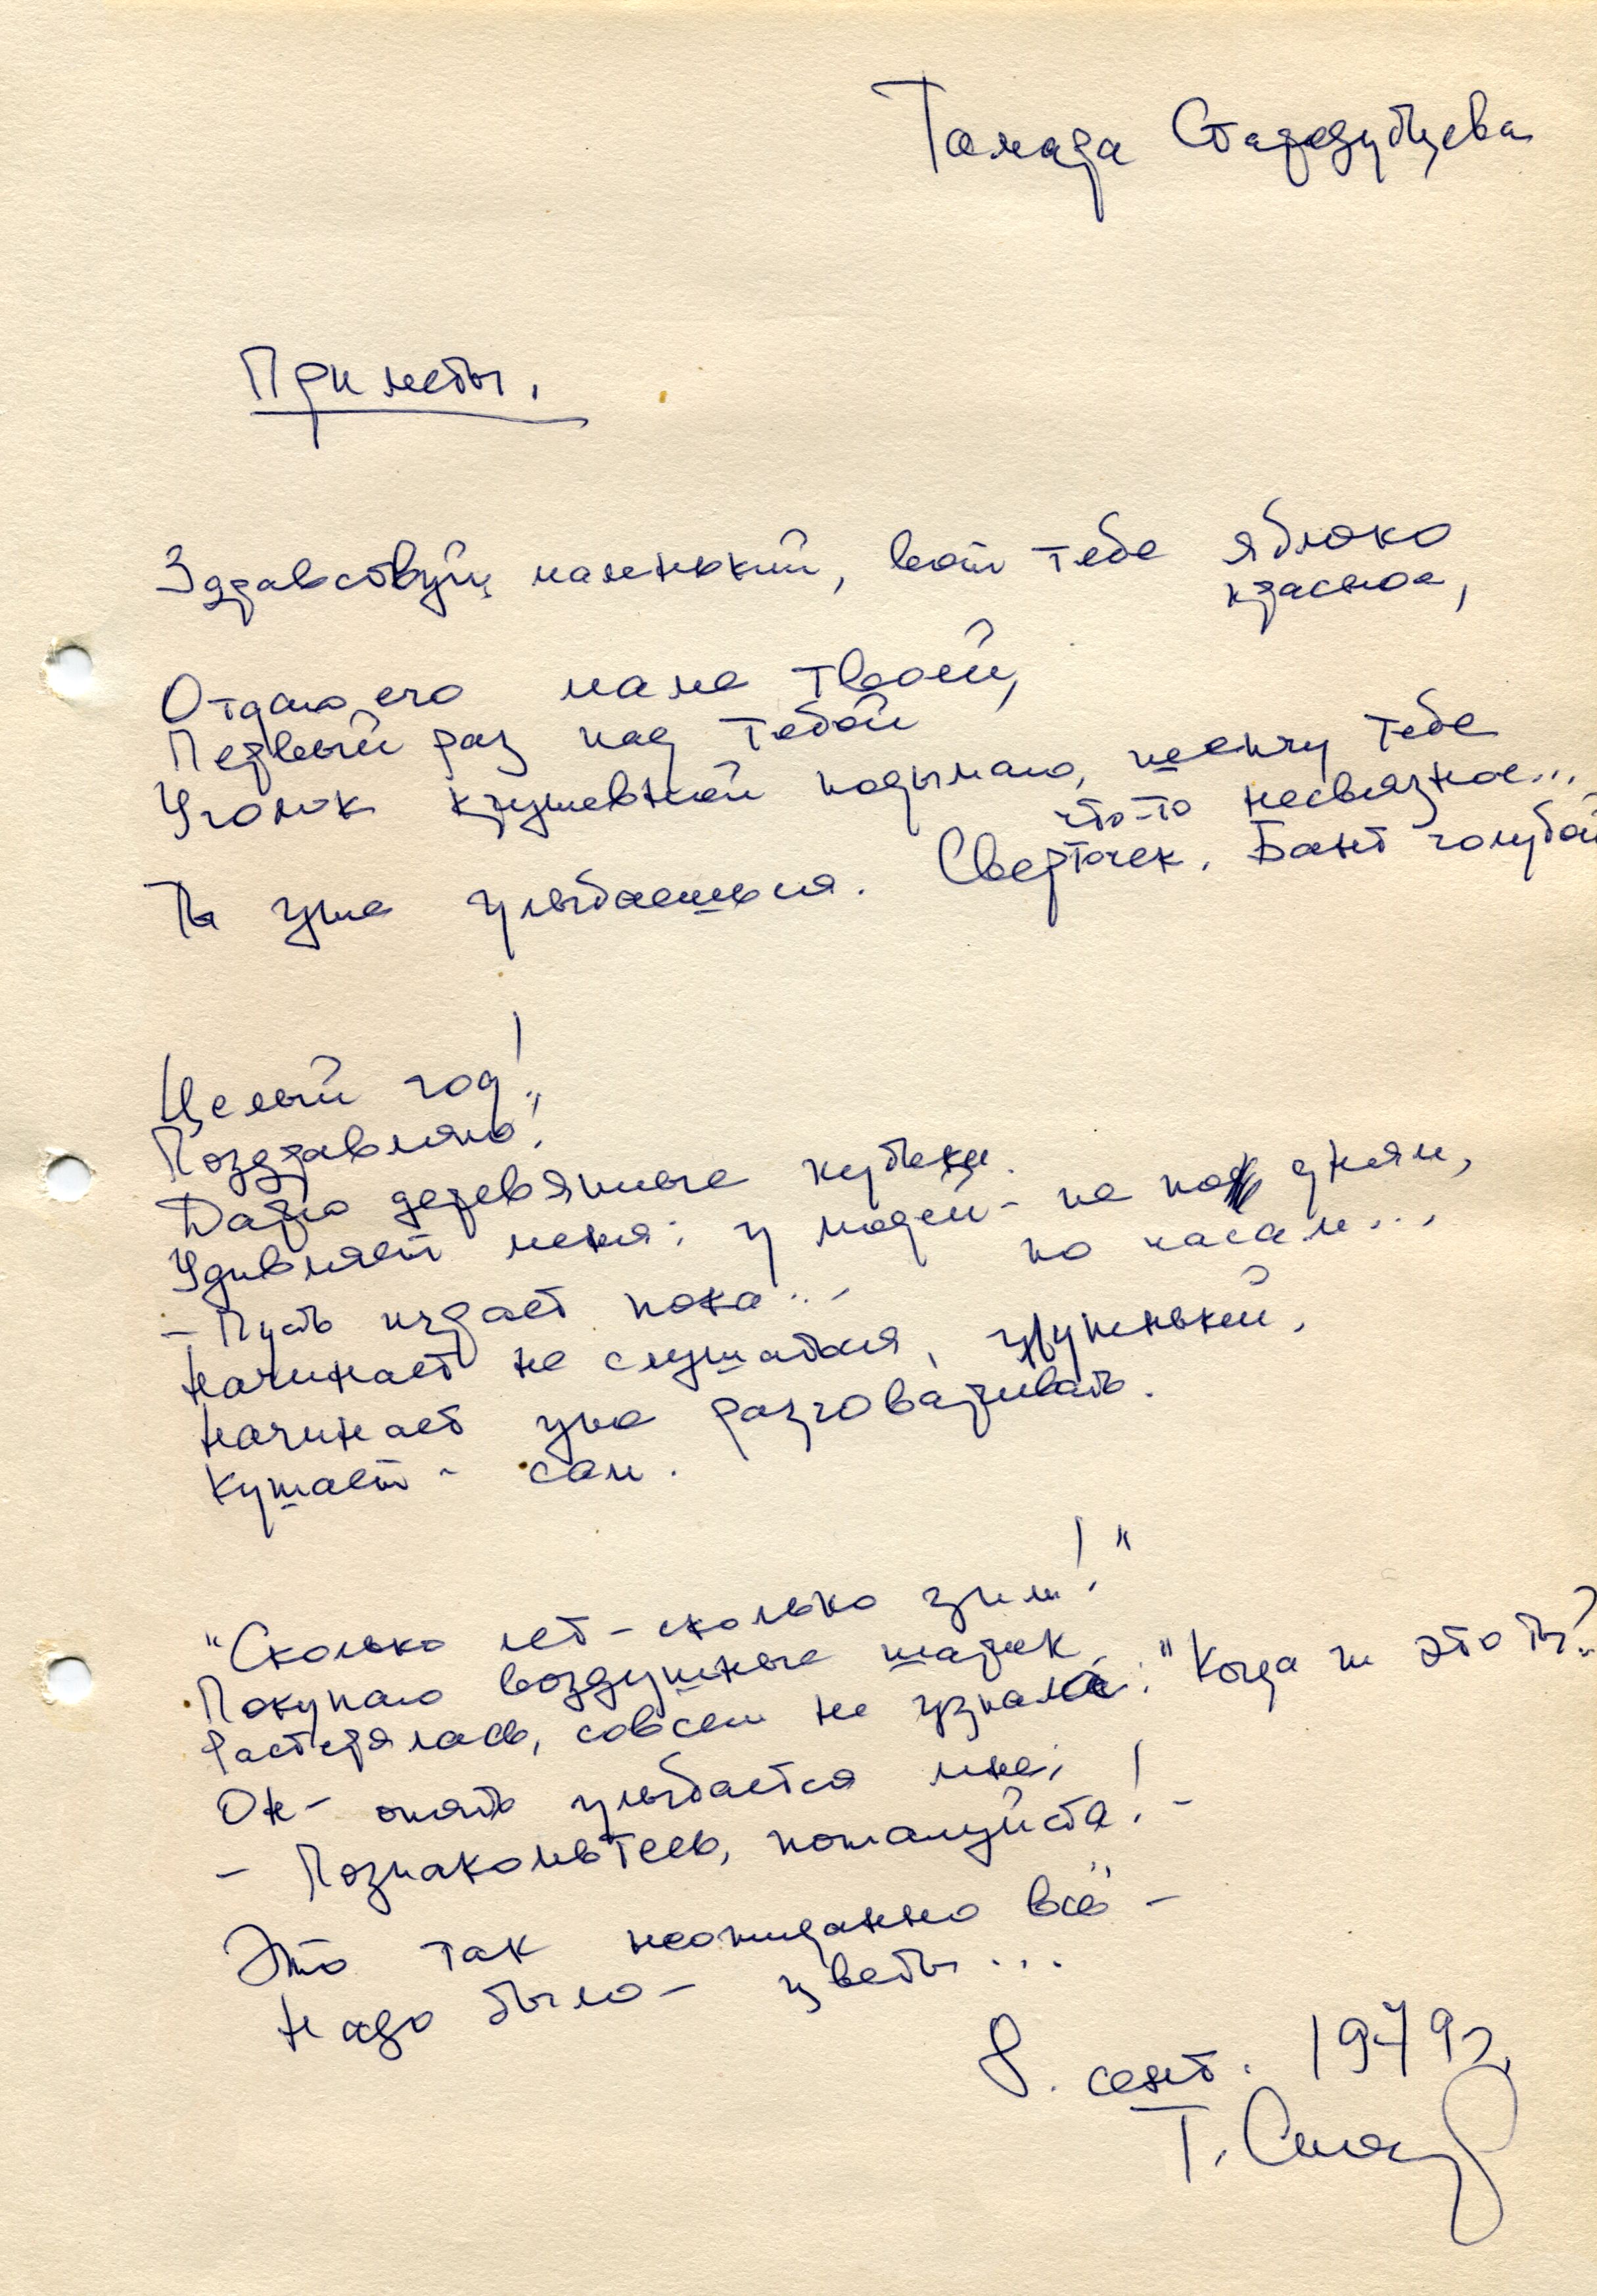 Тамара Стародубцева
Приметы.
Здравствуй, маленький, вот тебе яблоко
красное,
Отдаю его маме твоей,
Первый раз над тобой
Уголок кружевной подымаю, шепчу тебе
что-то несвязное...
Ты уже улыбаешься. Сверточек. Бант голубой
Целый год!
Поздравляю!
Дарю деревянные кубики.
Удивляет меня: у людей - не по дням,
по часам...
- Пусть играет пока...
Начинает не слушаться,
Начинает уже разговаривать.
Кушает - сам.
"Сколько лет - сколько зим!"
Покупаю воздушные шарик
Растерялась, совсем не узнала: "Когда ж это ты?"
Он - опять улыбается мне;
- Познакомьтесь, пожалуйста! -
Это так неожиданно всё -
Надо было - цветы...
8. сент. 1979 г.
Т.